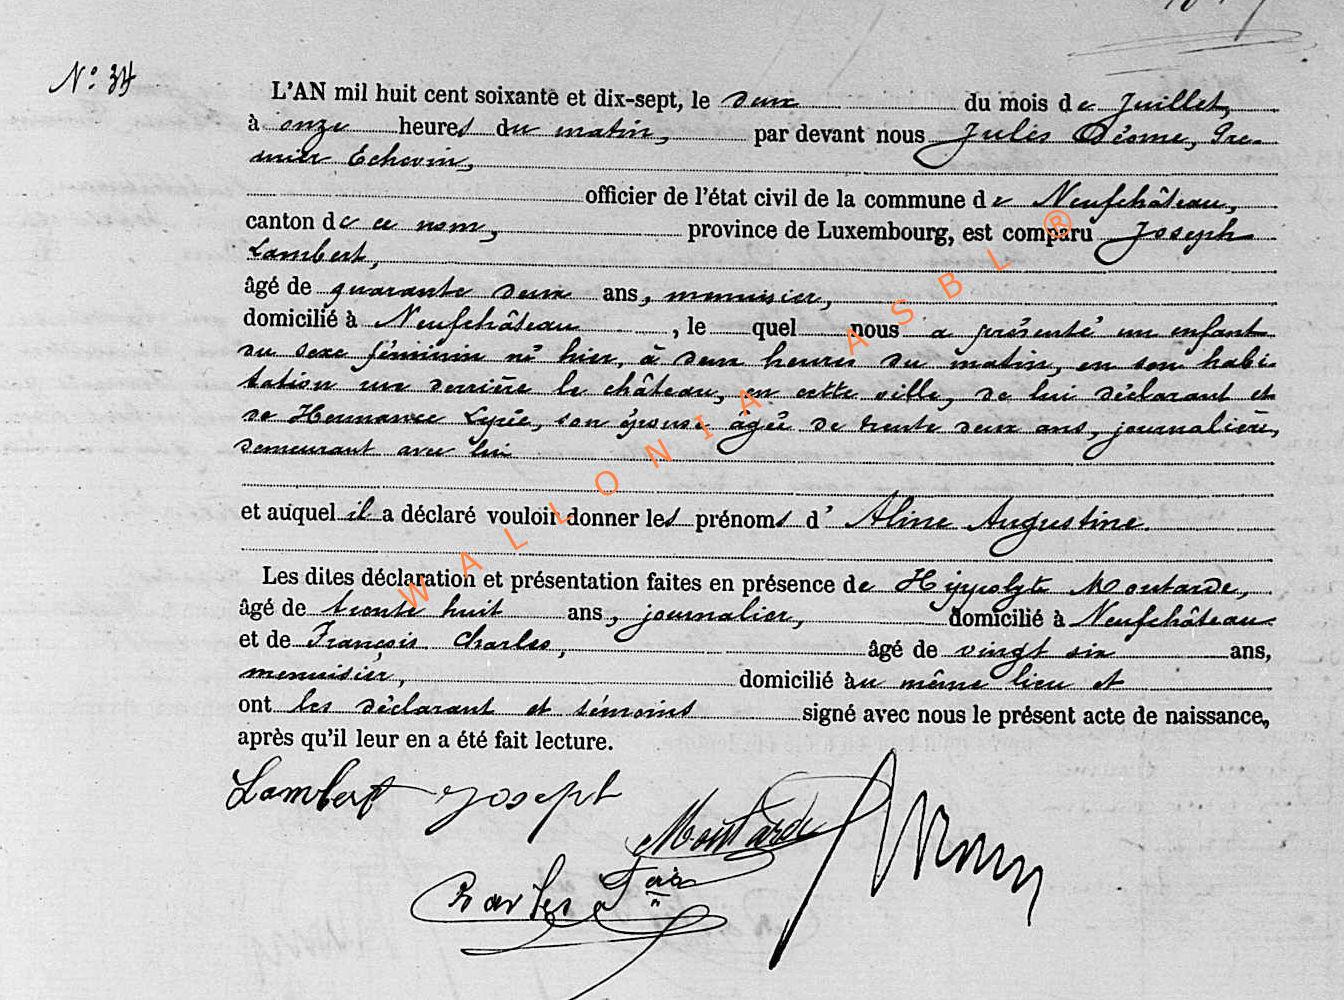 N° 34
L'AN mil huit cent soixante et dix-sept, le deux du mois de Juillet,
à onze heures du matin, par devant nous Jules Déome, Pre-
mier Echevin,
officier de l'état civil de la commune de Neufchâteau,
canton de ce nom, province de Luxembourg, est comparu Joseph
Lambert,
âgé de quarante deux ans, menuisier,
domicilié à Neufchâteau, le quel nous a présenté un enfant
du sexe féminin né hier, à deux heures du matin, en son habi-
tation un derrière le château, en cette ville, de lui déclarant et
de Hermance son épouse âgée de trente deux ans, journalière,
demeurant avec lui
et auquel il a déclaré vouloir donner les prénoms d'Aline Augustine.
Les dites déclaration et présentation faites en présence de Hippolyte Moutarde,
âgé de trente huit ans, journalier, domicilié à Neufchâteau
et de François Charles, âgé de vingt six ans,
menuisier, domicilié au même lieu et
ont les déclarant et témoins signé avec nous le présent acte de naissance,
après qu'il leur en a été fait lecture.
Lambert Joseph
Moutarde
Charles Fçois
WALLONIA ASBL ®